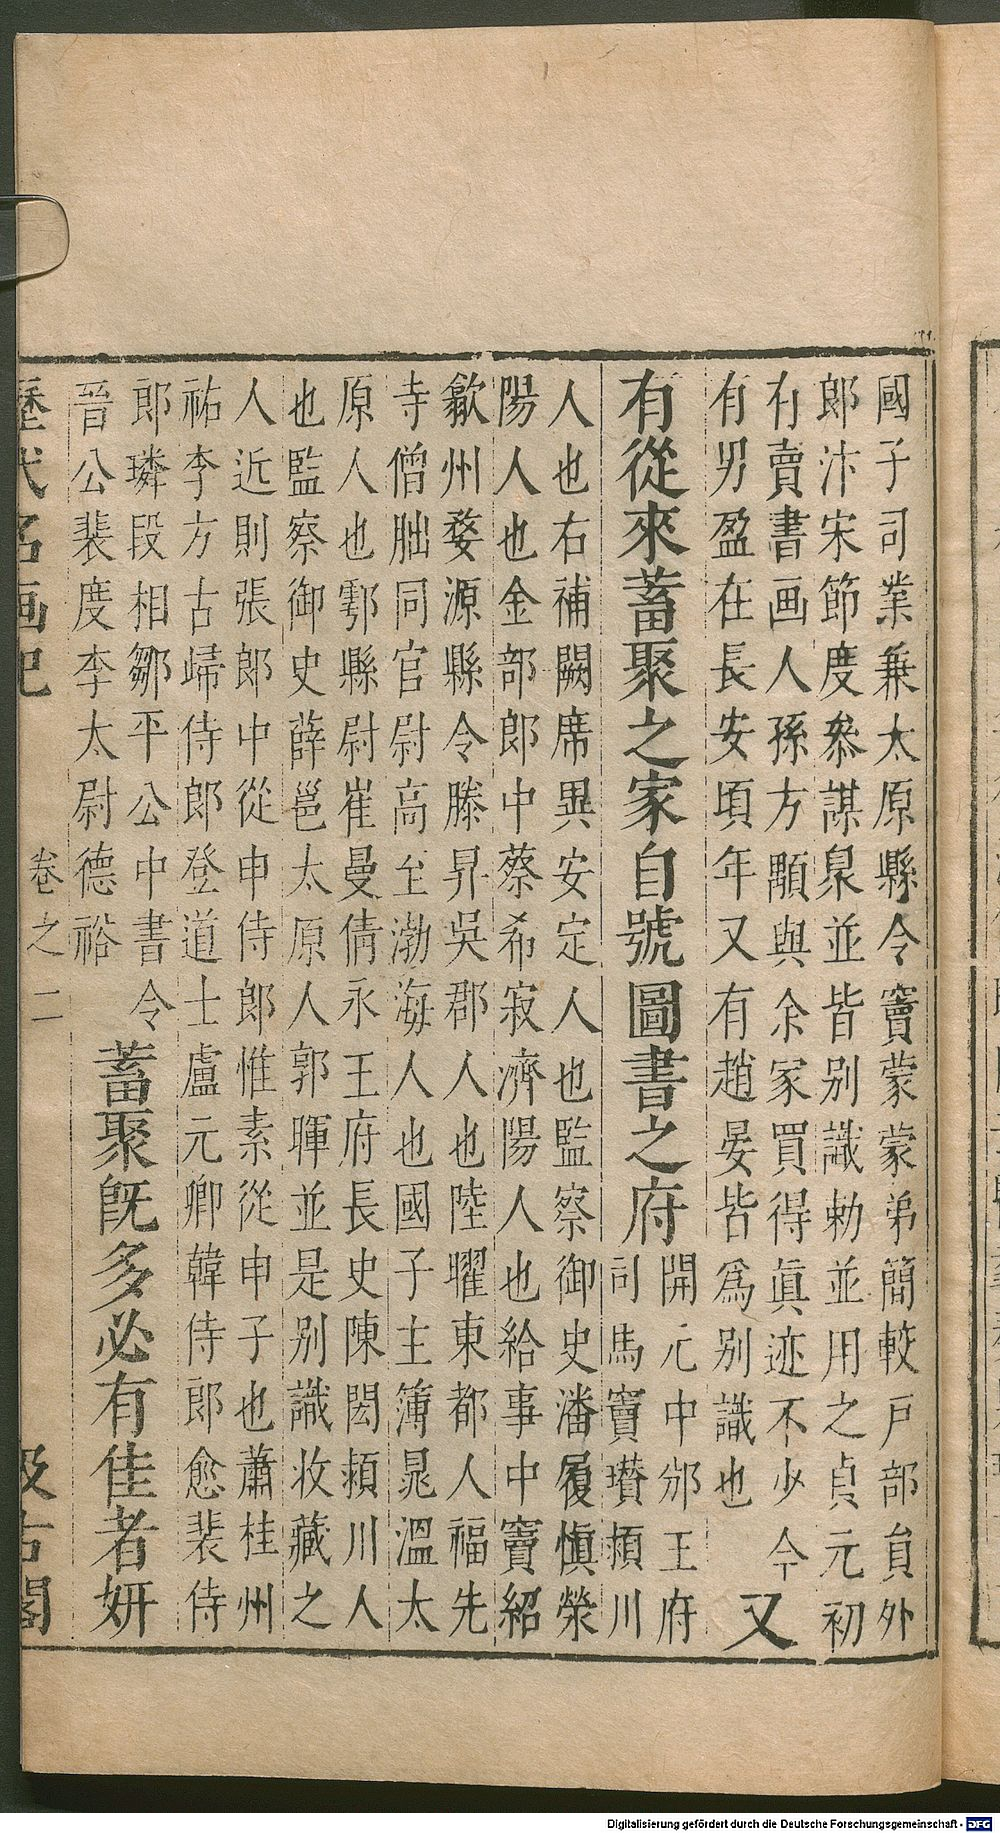 國子司業兼太原縣令竇蒙蒙弟簡較戸部員外
郎汴宋節度叅謀臮並皆别識勅並用之貞元初
有賣書画人孫方顒與余家買得眞迹不少今
有男盈在長安頃年又有趙晏皆爲别識也
又
有從來蓄聚之家自號圖書之府
開元中邠王府
司馬竇瓚頴川
人也右補闕席異安定人也監察御史潘履愼滎
陽人也金部郎中蔡希寂濟陽人也給事中竇紹
歙州婺源縣令滕昇吳郡人也陸曜東都人福先
寺僧朏同官尉高至渤海人也國子主簿晁溫太
原人也鄠縣尉崔曼倩永王府長史陳閎頴川人
也監察御史薛邕太原人郭暉並是别識收藏之
人近則張郎中從申侍郎惟素從申子也蕭桂州
祐李方古歸侍郎登道士盧元卿韓侍郎愈裴侍
郎璘段相鄒平公中書令
晉公裴度李太尉德裕
蓄聚旣多必有佳者妍
歷代名画記
卷之二
汲古閣
Digitalisierung gefördert durch die Deutsche Forschungsgemeinschaft - DFG